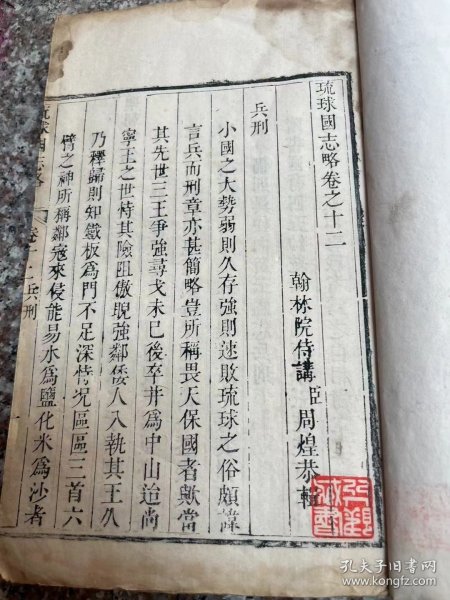 琉球國志略卷之十二
翰林院侍講臣周煌恭輯
兵刑
小國之大勢弱則久存強則速敗琉球之俗頗諱
言兵而刑章亦甚簡略豈所稱畏天保國者歟當
其先世三王爭強尋戈未已後卒并爲中山迨尚
寧王之世恃其險阻傲睨強鄰倭人入執其王久
乃釋歸則知鐵板爲門不足深恃況區區三首六
臂之神所稱鄰寇來侵能易水爲鹽化米爲沙者
琉球國志略
卷十二兵刑
孔夫子旧书网
www.kongfz.com